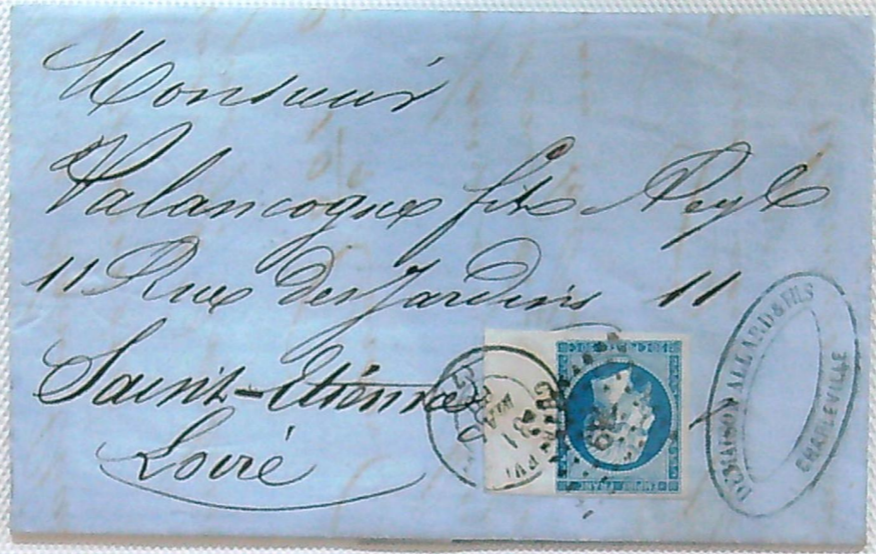 Monsieur
Valancogne fils Neyl
11 Rue des Jardins 11
Saint-Etienne
Loire
DEMAISON ALLARD & FILS
CHARLEVILLE
EMPIRE FRANC